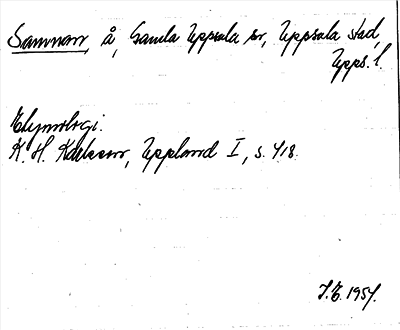 Samnan, å, Gamla Uppsala sn, Uppsala stad,
Upps. l.
Etymologi.
K. H. Karlsson, Uppland I, s. 418.
1957.